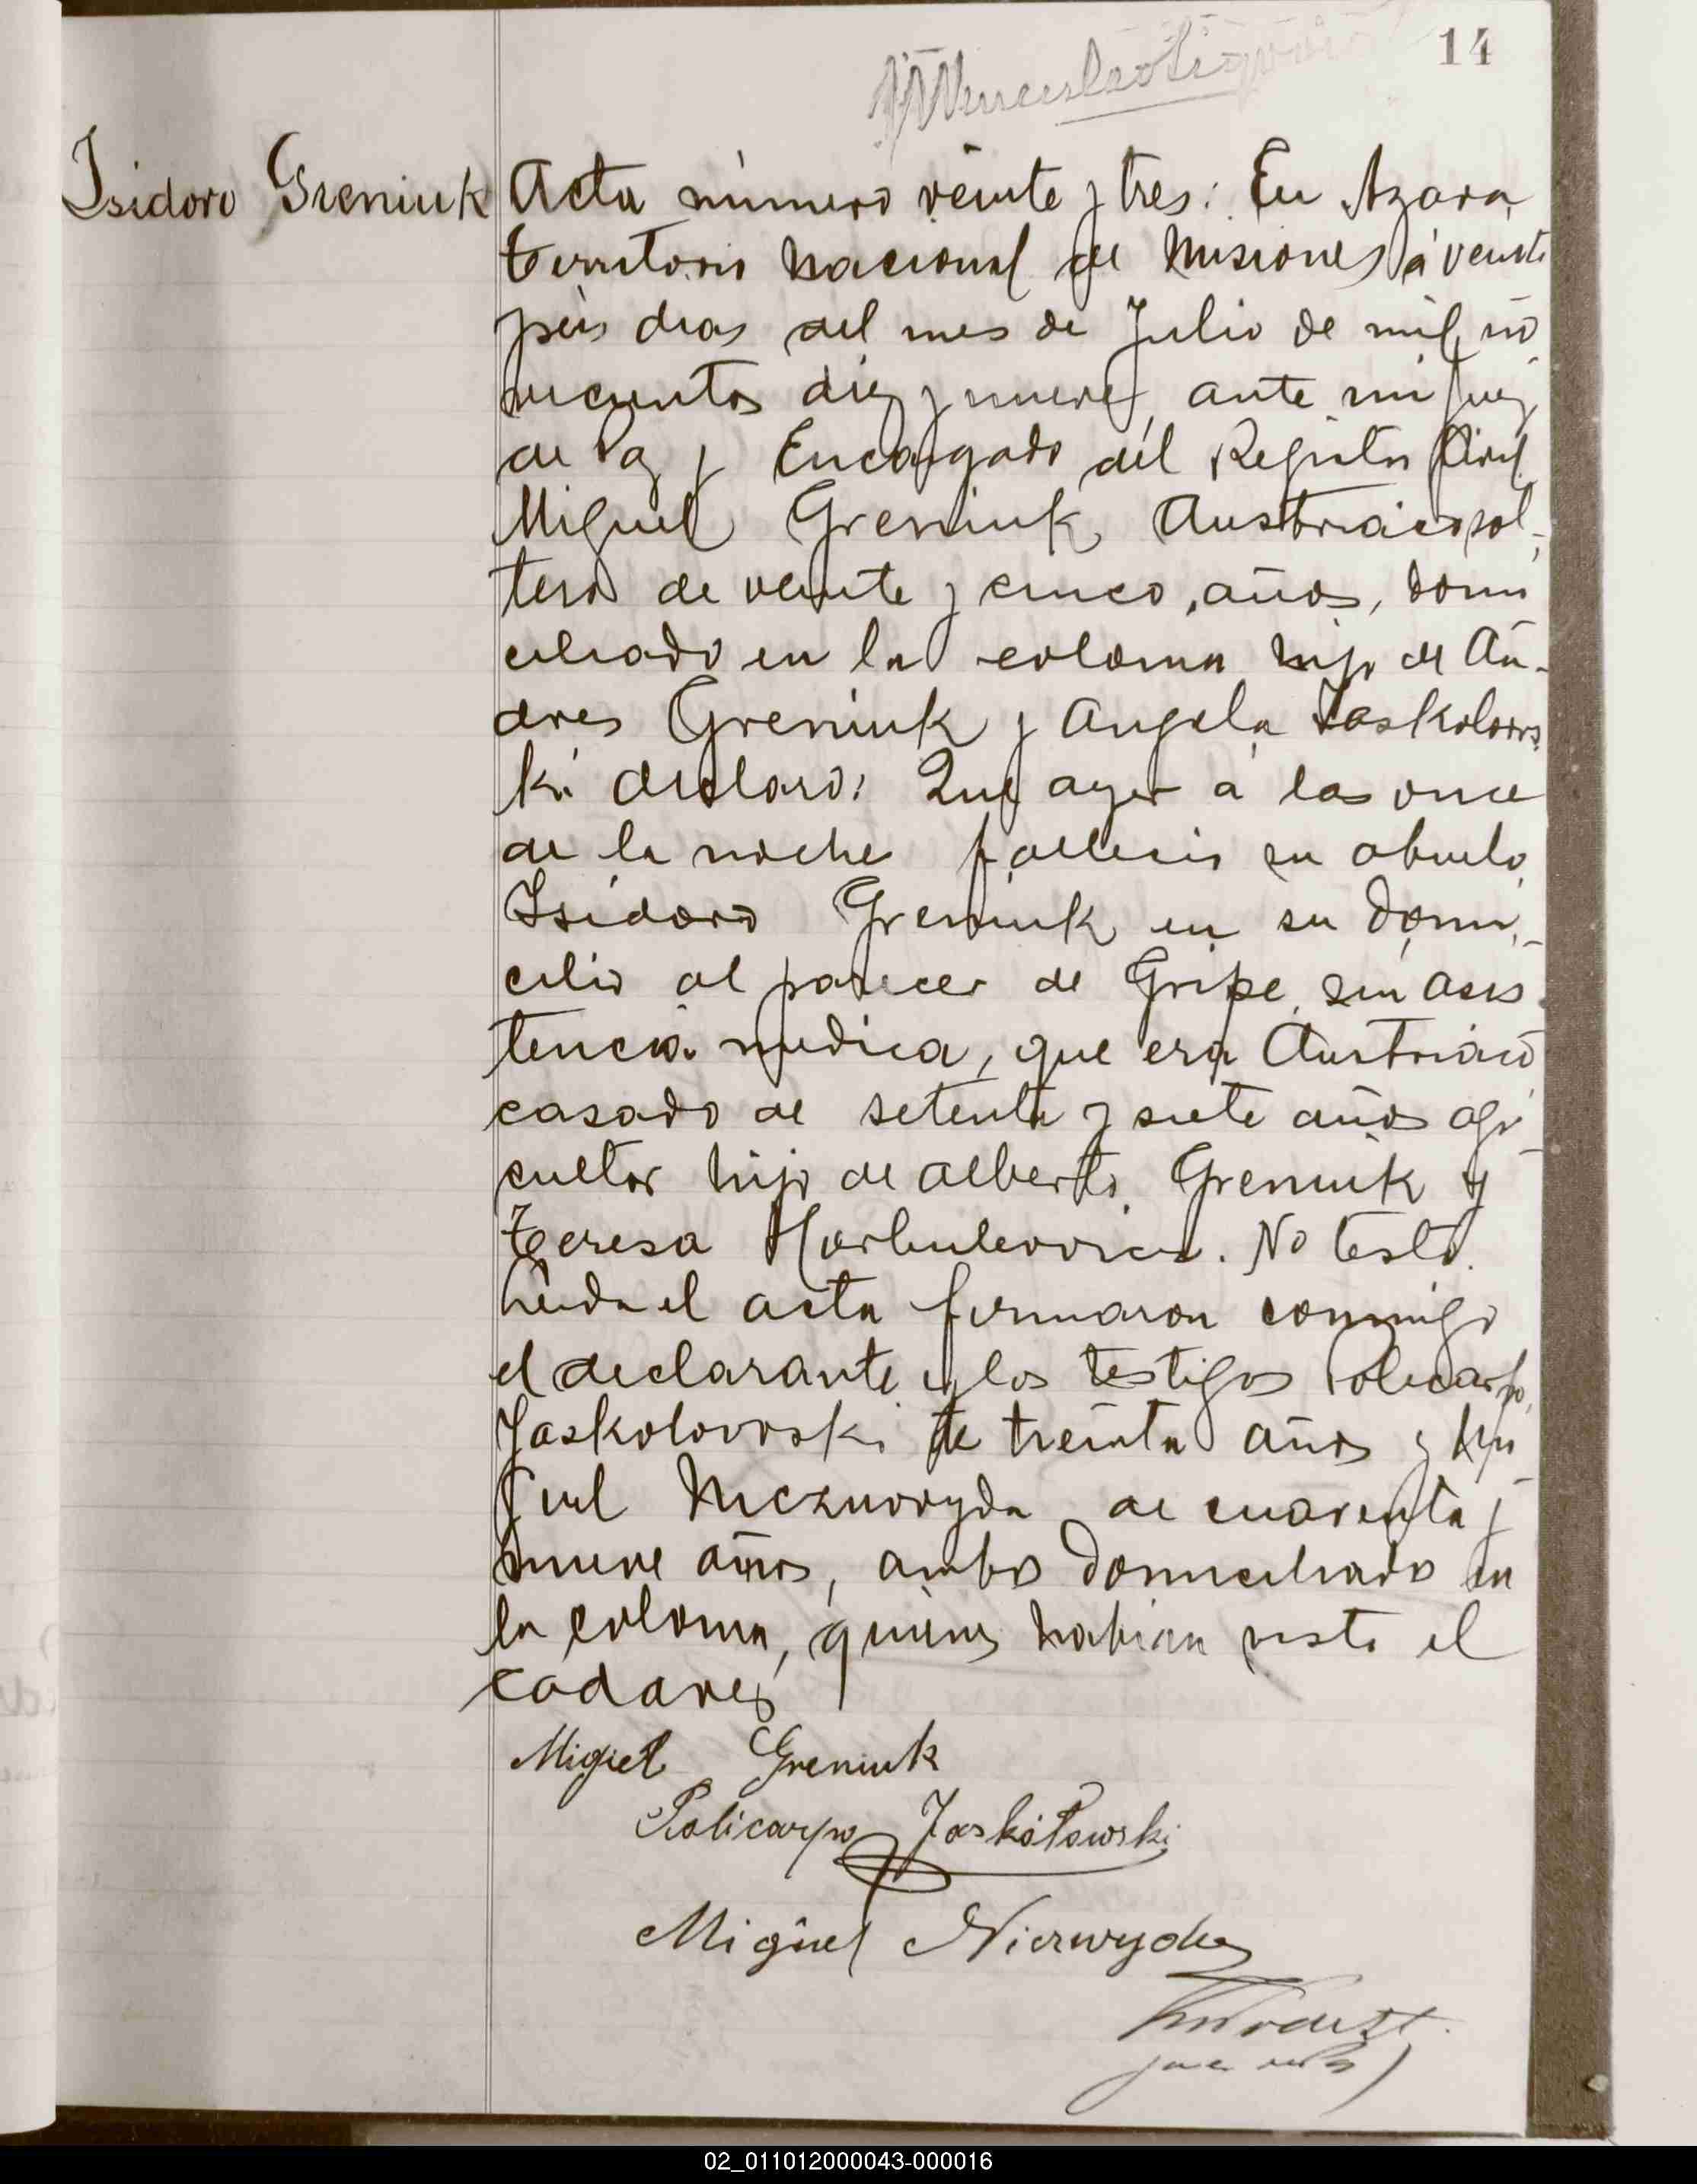 14
Isidoro Greniuk
Acta número veinte y tres: En Azara,
territorio Nacional de Misiones á veinte
y seis dias del mes de Julio de mil no
vecientos diez y nueve, ante mi Juez
de Paz y Encargado del Registro Civil
Miguel Greniuk, Austriaco, sol-
tero de veinte y cinco años, domi
ciliado en la colonia hijo de An-
dres Greniuk y Angela Jaskolows
ki declaro: Que ayer á las once
de la noche fallecio su abuelo
Isidoro Greniuk en su domi-
cilio al parecer de Gripe, sin asis
tencia medica, que era Austriaco
casado de setenta y siete años agri
cultor hijo de Alberto Greniuk y
Teresa. No testó.
Leida el acta firmaron conmigo
el declarante y los testigos Policarpo
Jaskolowski de treinta años y Mi
guel Nieznwyda de cuarenta y
nueve años, ambos domiciliado en
la colonia, quienes habian visto el
cadaver
Miguel Greniuk
Policarpo Jaskółowski
Miguel
Juez de Paz
02_011012000043-000016